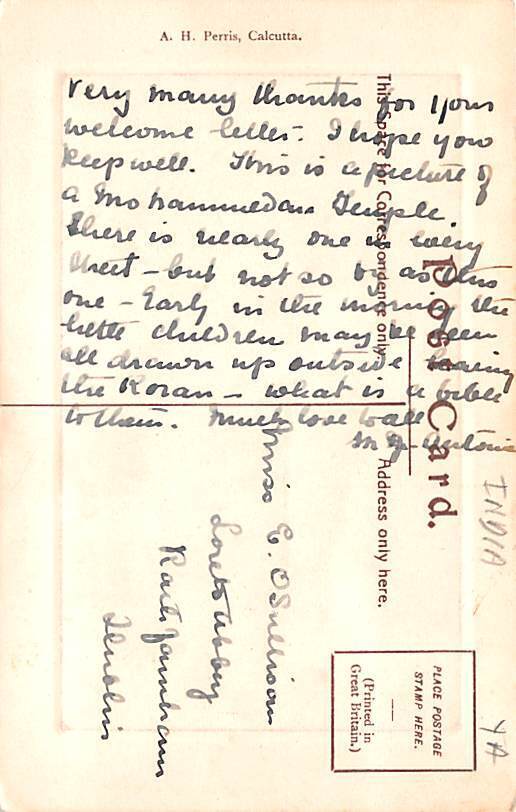 A. H. Perris, Calcutta.
Very many thanks for your
welcome letter. I hope you
keep well. This is a picture of
a Mohammedan Temple.
There is nearly one in every
street - but not so big as this
one - Early in the morning the
little children may be seen
all drawn up outside learning
the Koran - what is a bible
to them. Much love to all
M. M. Antonia
Post Card.
This Space for Correspondence only.
Address only here.
Miss E. O'Sullivan
Loreto Abbey
Rathfarnham
Dublin
PLACE POSTAGE
STAMP HERE.
(Printed in
Great Britain.)
INDIA